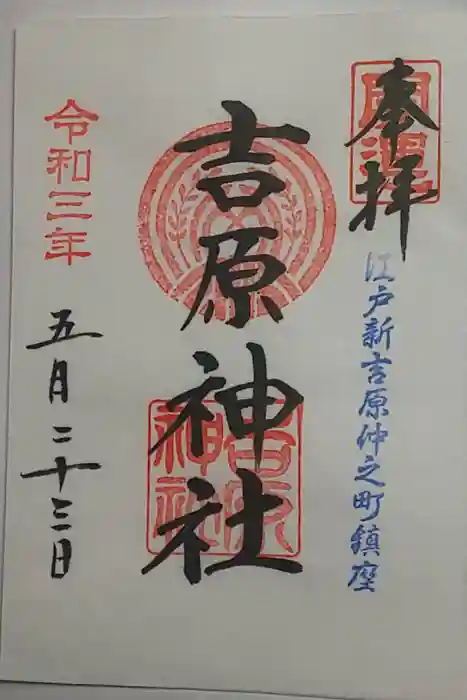 奉拝
江戸新吉原仲之町鎮座
吉原神社
吉原神社
令和三年
五月二十三日